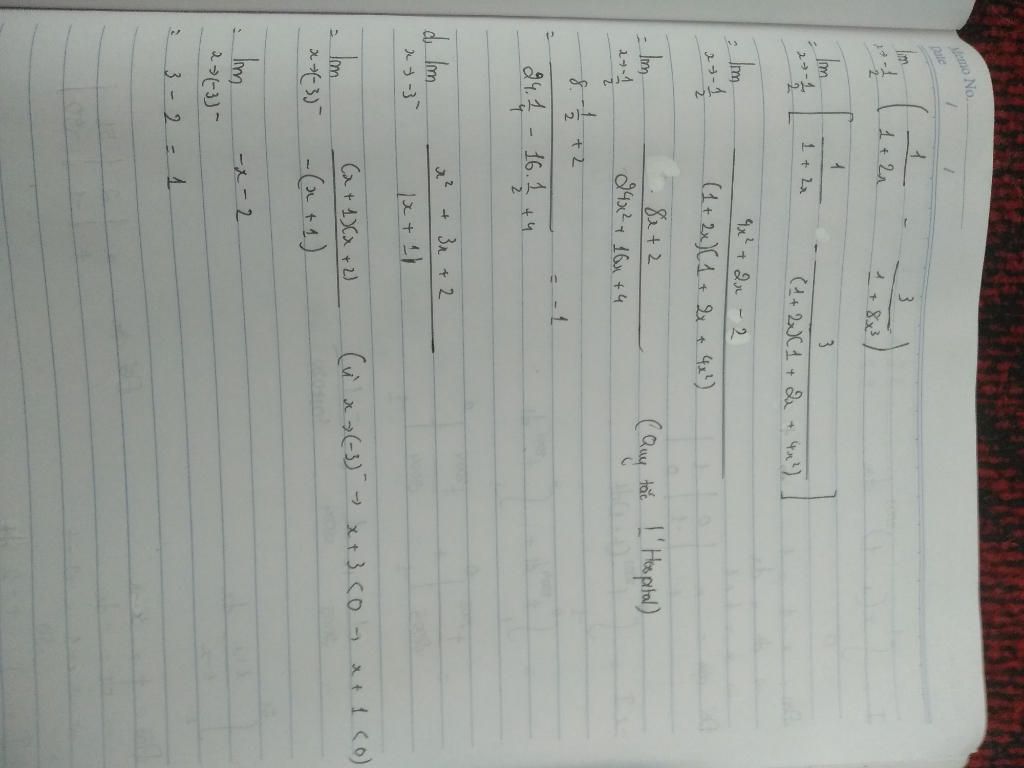 Memo No.
Date / /
lim x→-1/2 ( 1/(1+2x) - 3/(1+8x³) )
= lim x→-1/2 [ 1/(1+2x) - 3/((1+2x)(1+2x+4x²)) ]
= lim x→-1/2 (4x²+2x-2)/((1+2x)(1+2x+4x²))
= lim x→-1/2 (8x+2)/(24x²+16x+4) (Quy tắc L'Hospital)
= (8.-1/2+2)/(24.1/4 - 16.1/2 + 4) = -1
d. lim x→-3⁻ (x²+3x+2)/|x+1|
= lim x→(-3)⁻ (x+1)(x+2)/-(x+1) (vì x→(-3)⁻ → x+3<0 → x+1<0)
= lim x→(-3)⁻ -x-2
= 3-2 = 1